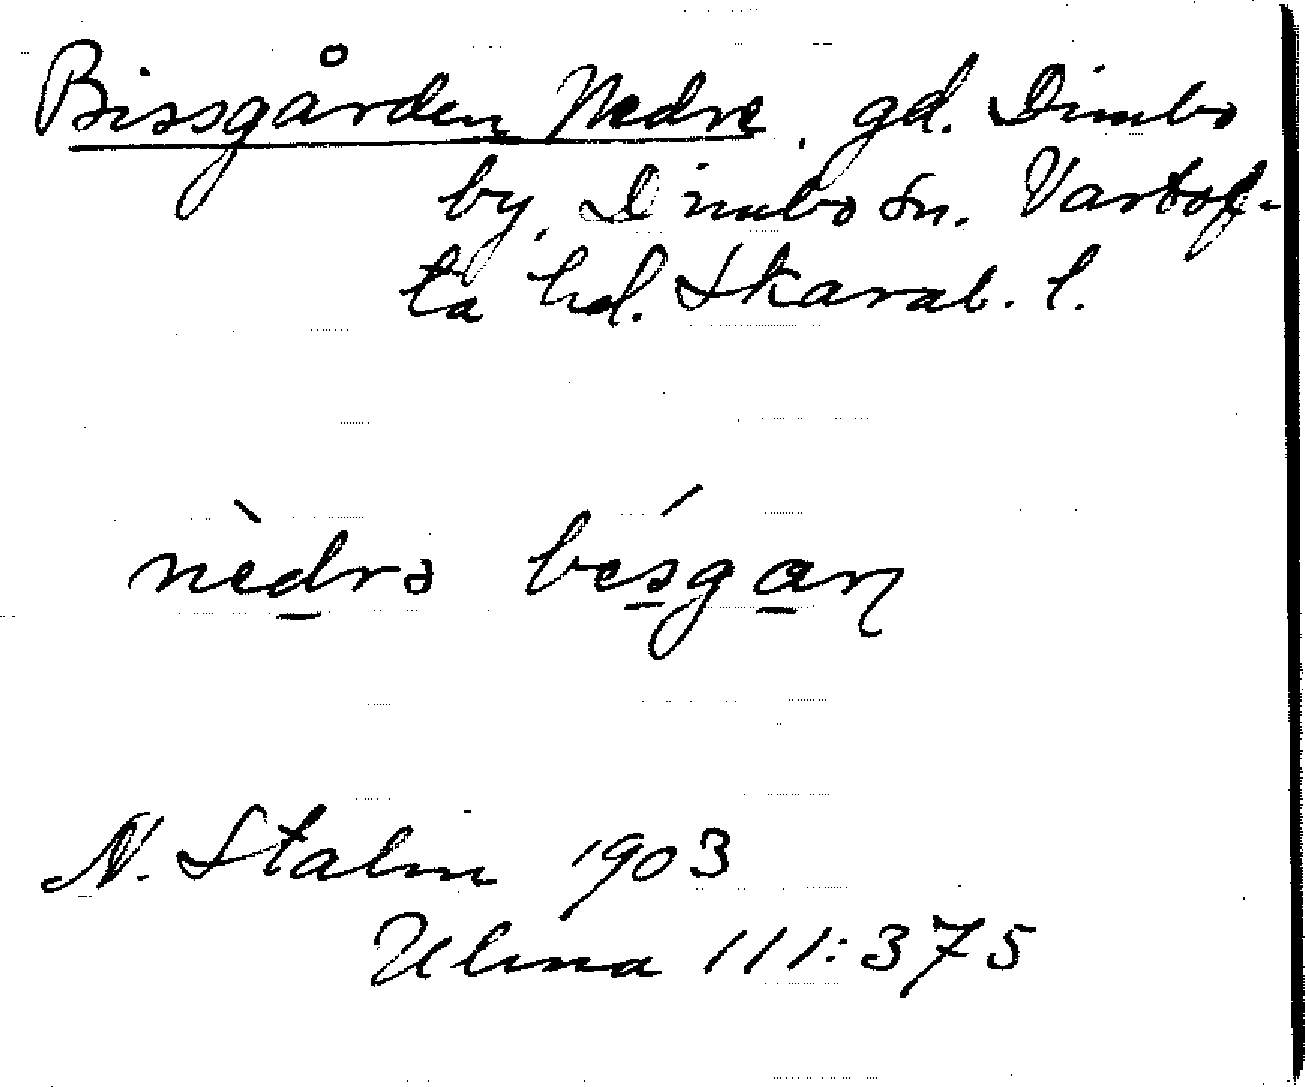 Bissgården Nedre, gd. Dimbo
by, Dimbo sn. Vartof-
ta hd. Skarab. l.
nèdrə bésgaɳ
N. Stalin 1903
Ulma 111:375